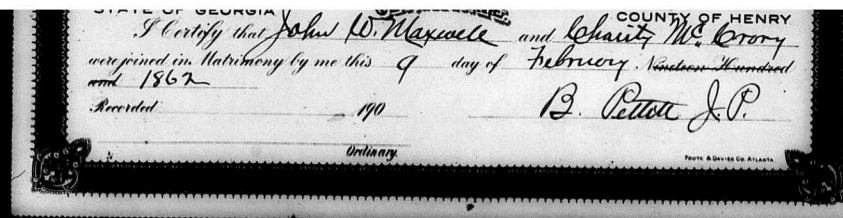 STATE OF GEORGIA COUNTY OF HENRY
I Certify that John W. Maxwell and Charity Mc Crory
were joined in Matrimony by me this 9 day of February. Nineteen Hundred
and 1862
Recorded 190 B. Pettett J.P.
Ordinary.
FOOTE & DAVIES CO. ATLANTA